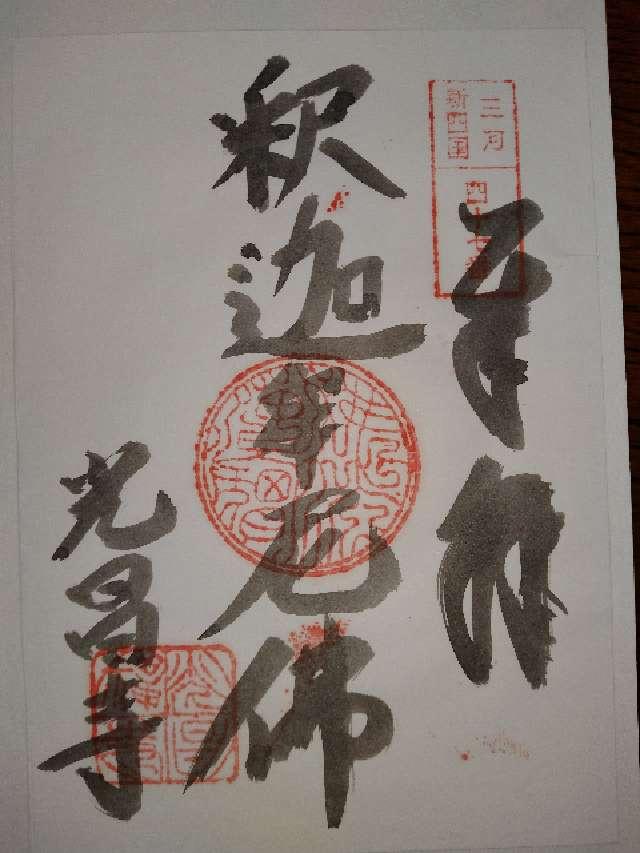 三河
新四国
四十七番
奉拝
釈迦牟尼佛
光昌寺